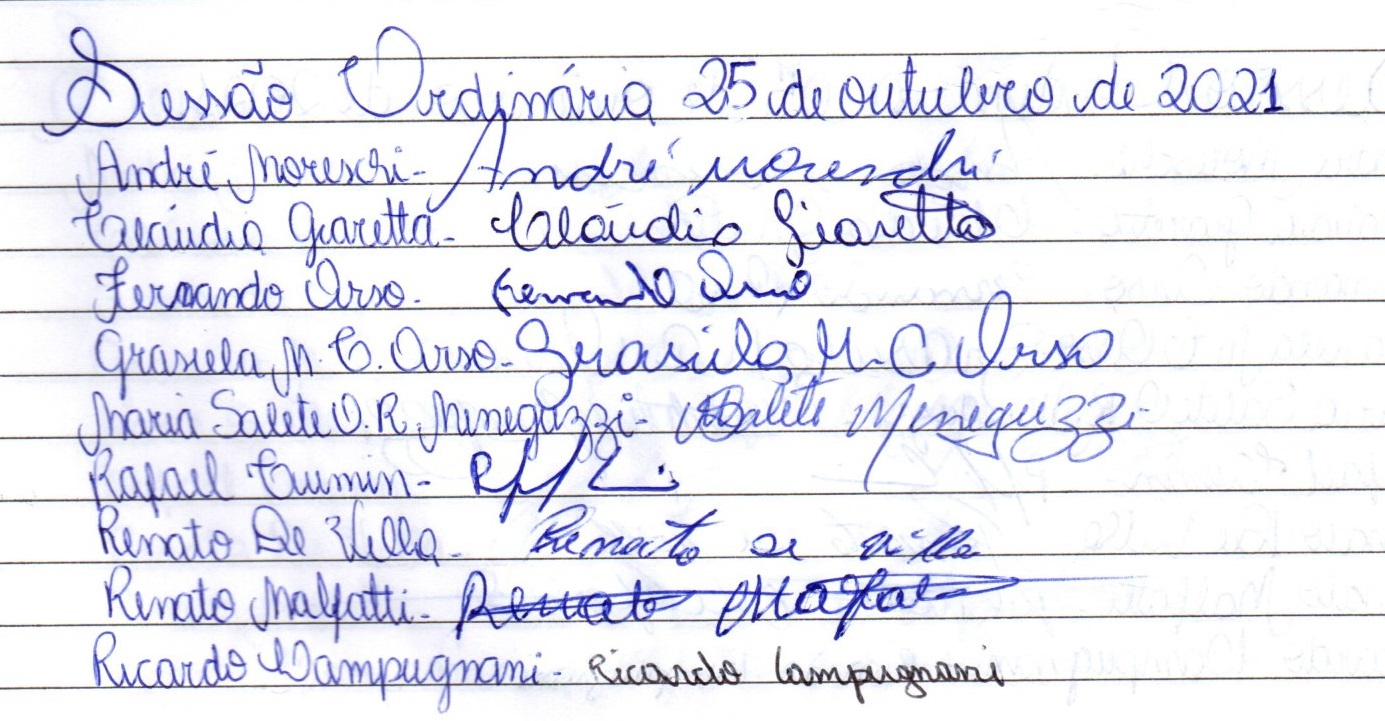 Sessão Ordinária 25 de outubro de 2021
André Moreschi - André Moreschi
Claúdio Giaretta - Claúdio Giaretta
Fernando Orso - Fernando Orso
Grasiela M. C. Orso - Grasiela M. C Orso
Maria Salete O. R. Meneguzzi - Salete Meneguzzi
Rafael Cumin -
Renato De Villa - Renato de villa
Renato Malfatti - Renato Malfatti
Ricardo Campugnani - Ricardo Campugnani